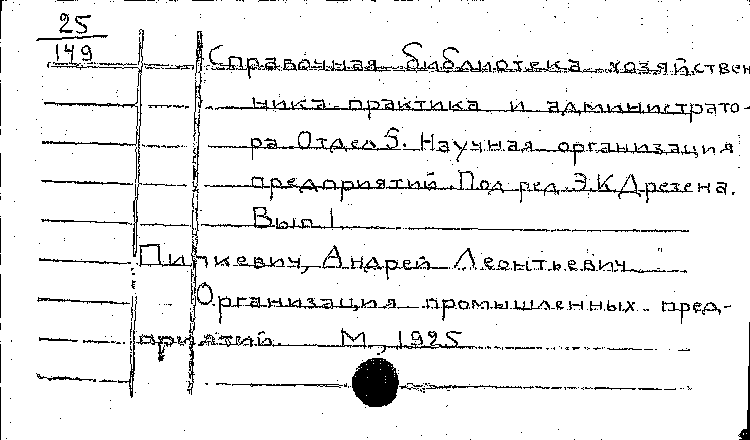 25
149
Справочная библиотека хозяйствен
ника практика и администрато-
ра Отдел 5. Научная организация
предприятий Под ред. Э.К Дрезена.
Вып 1
Пинкевич, Андрей Леонтьевич
Организация промышленных пред-
приятий. М, 1925